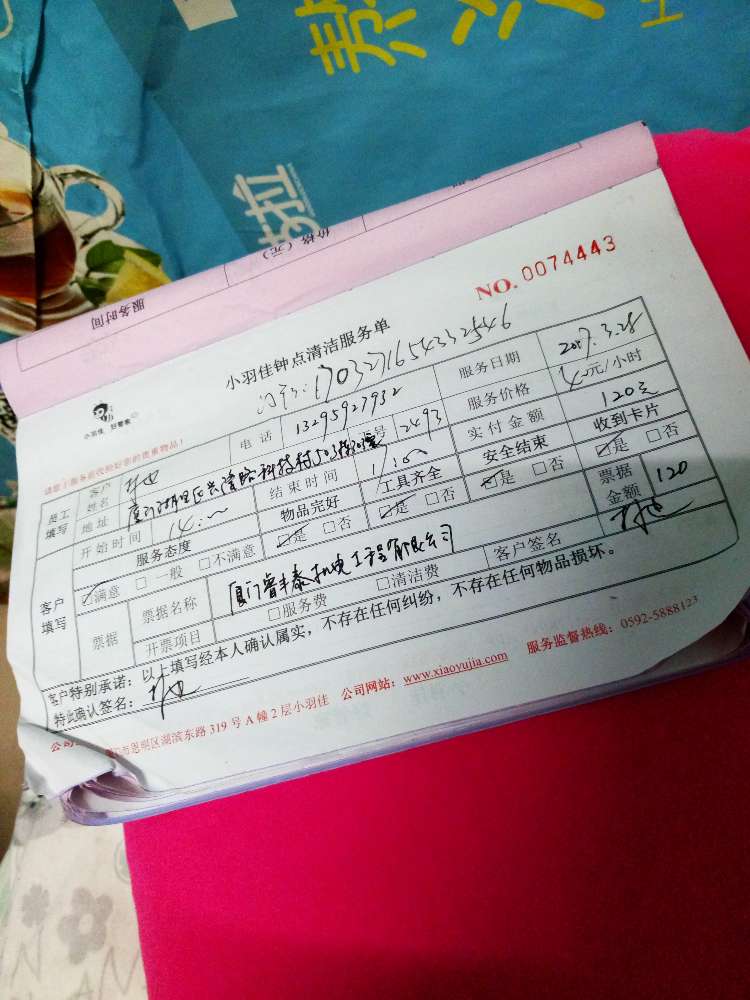 拉
价格（元）
服务时间
NO.0074443
小羽佳钟点清洁服务单
小羽佳 好管家
1703271654332546
请您上服务前收检好您的贵重物品！
员工填写
客户姓名
电话
13295927932
服务日期
2017.3.28
地址
2493
服务价格
40元/小时
开始时间
14:00
结束时间
17:00
实付金额
120元
客户填写
服务态度
物品完好
工具齐全
安全结束
收到卡片
☑满意 □一般 □不满意
☑是 □否
☑是 □否
☑是 □否
☑是 □否
票据
票据名称
厦门睿丰泰机电工程有限公司
票据金额
120
开票项目
□服务费
□清洁费
客户签名
客户特别承诺：以上填写经本人确认属实，不存在任何纠纷，不存在任何物品损坏。
特此确认签名：
思明区湖滨东路319号A幢2层小羽佳 公司网站：www.xiaoyujia.com 服务监督热线：0592-5888123